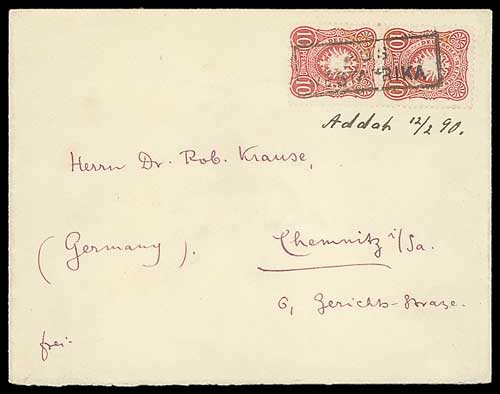 10 10
RIKA
Addah 12/2 90.
Herrn Dr. Rob. Krause,
(Germany). Chemnitz i/Sa.
6, Gerichts-Strasze.
frei